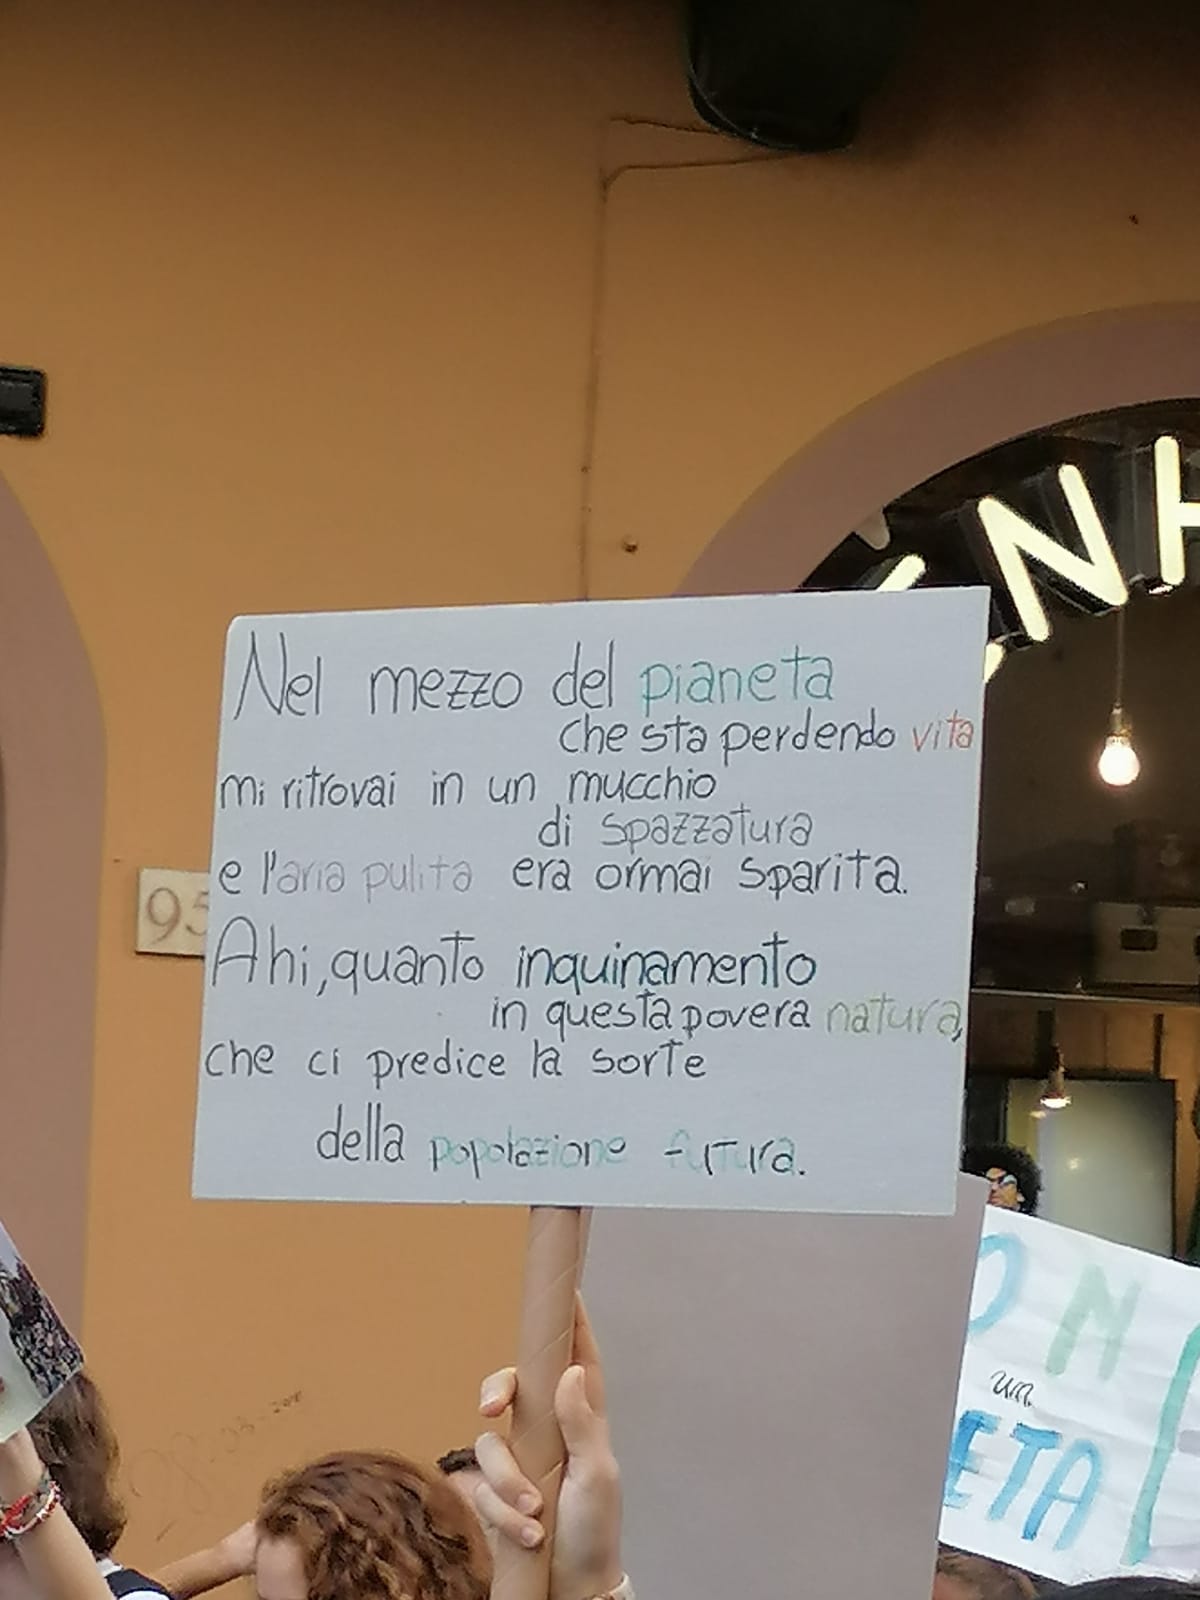 Nel mezzo del pianeta
che sta perdendo vita
mi ritrovai in un mucchio
di spazzatura
e l'aria pulita era ormai sparita.
Ahi, quanto inquinamento
in questa povera natura,
che ci predice la sorte
della popolazione futura.
95
ENH
ON
un
ETA